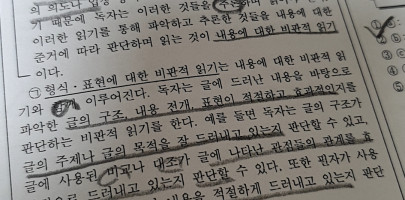 의 의도나 입장
기 때문에 독자는 이러한 것들을
이러한 읽기를 통해 파악하고 추론한 것들을 내용에 대한
준거에 따라 판단하며 읽는 것이 내용에 대한 비판적 읽기
이다.
㉠ 형식·표현에 대한 비판적 읽기는 내용에 대한 비판적 읽
기와 함께 이루어진다. 독자는 글에 드러난 내용을 바탕으로
파악한 글의 구조, 내용 전개, 표현이 적절하고 효과적인지를
판단하는 비판적 읽기를 한다. 예를 들면 독자는 글의 구조가
글의 주제나 글의 목적을 잘 드러내고 있는지 판단할 수 있고,
글에 사용된 비교나 대조가 글에 나타난 관점들의 관계를 효
으로 드러내고 있는지 판단할 수 있다. 또한 필자가 사용
내용을 적절하게 드러내고 있는지 판단